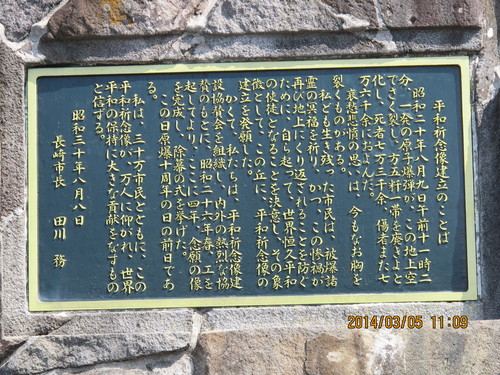 平和祈念像建立のことば
昭和二十年八月九日午前十一時二
分、一発の原子爆弾が、この地上空
でさく裂し、方五粁一帯を廃きよと
化し、死者七万三千余、傷者また七
万六千余におよんだ。
哀愁悲憤の思いは、今もなお胸を
裂くものがある。
私ども生き残った市民は、被爆諸
霊の冥福を祈り、かつ、この惨禍が
再び地上にくり返されることを防ぐ
ために、自ら起って、世界恒久平和
の使徒となることを決意し、その象
徴として、この丘に、平和祈念像の
建立を発願した。
かくて、私たちは、平和祈念像建
設協賛会を組織し、内外の熱烈な協
賛のもとに、昭和二十六年春、工を
起してより、ここに四年、念願の像
を完成し、除幕の式を挙げた。
この日原爆十周年の日の前日であ
る。
私は、三十万市民とともに、この
平和祈念像が、万人に仰がれ、世界
平和の保持に大きな貢献をなすもの
と信ずる。
昭和三十年八月八日
長崎市長 田川 務
2014/03/05 11:09